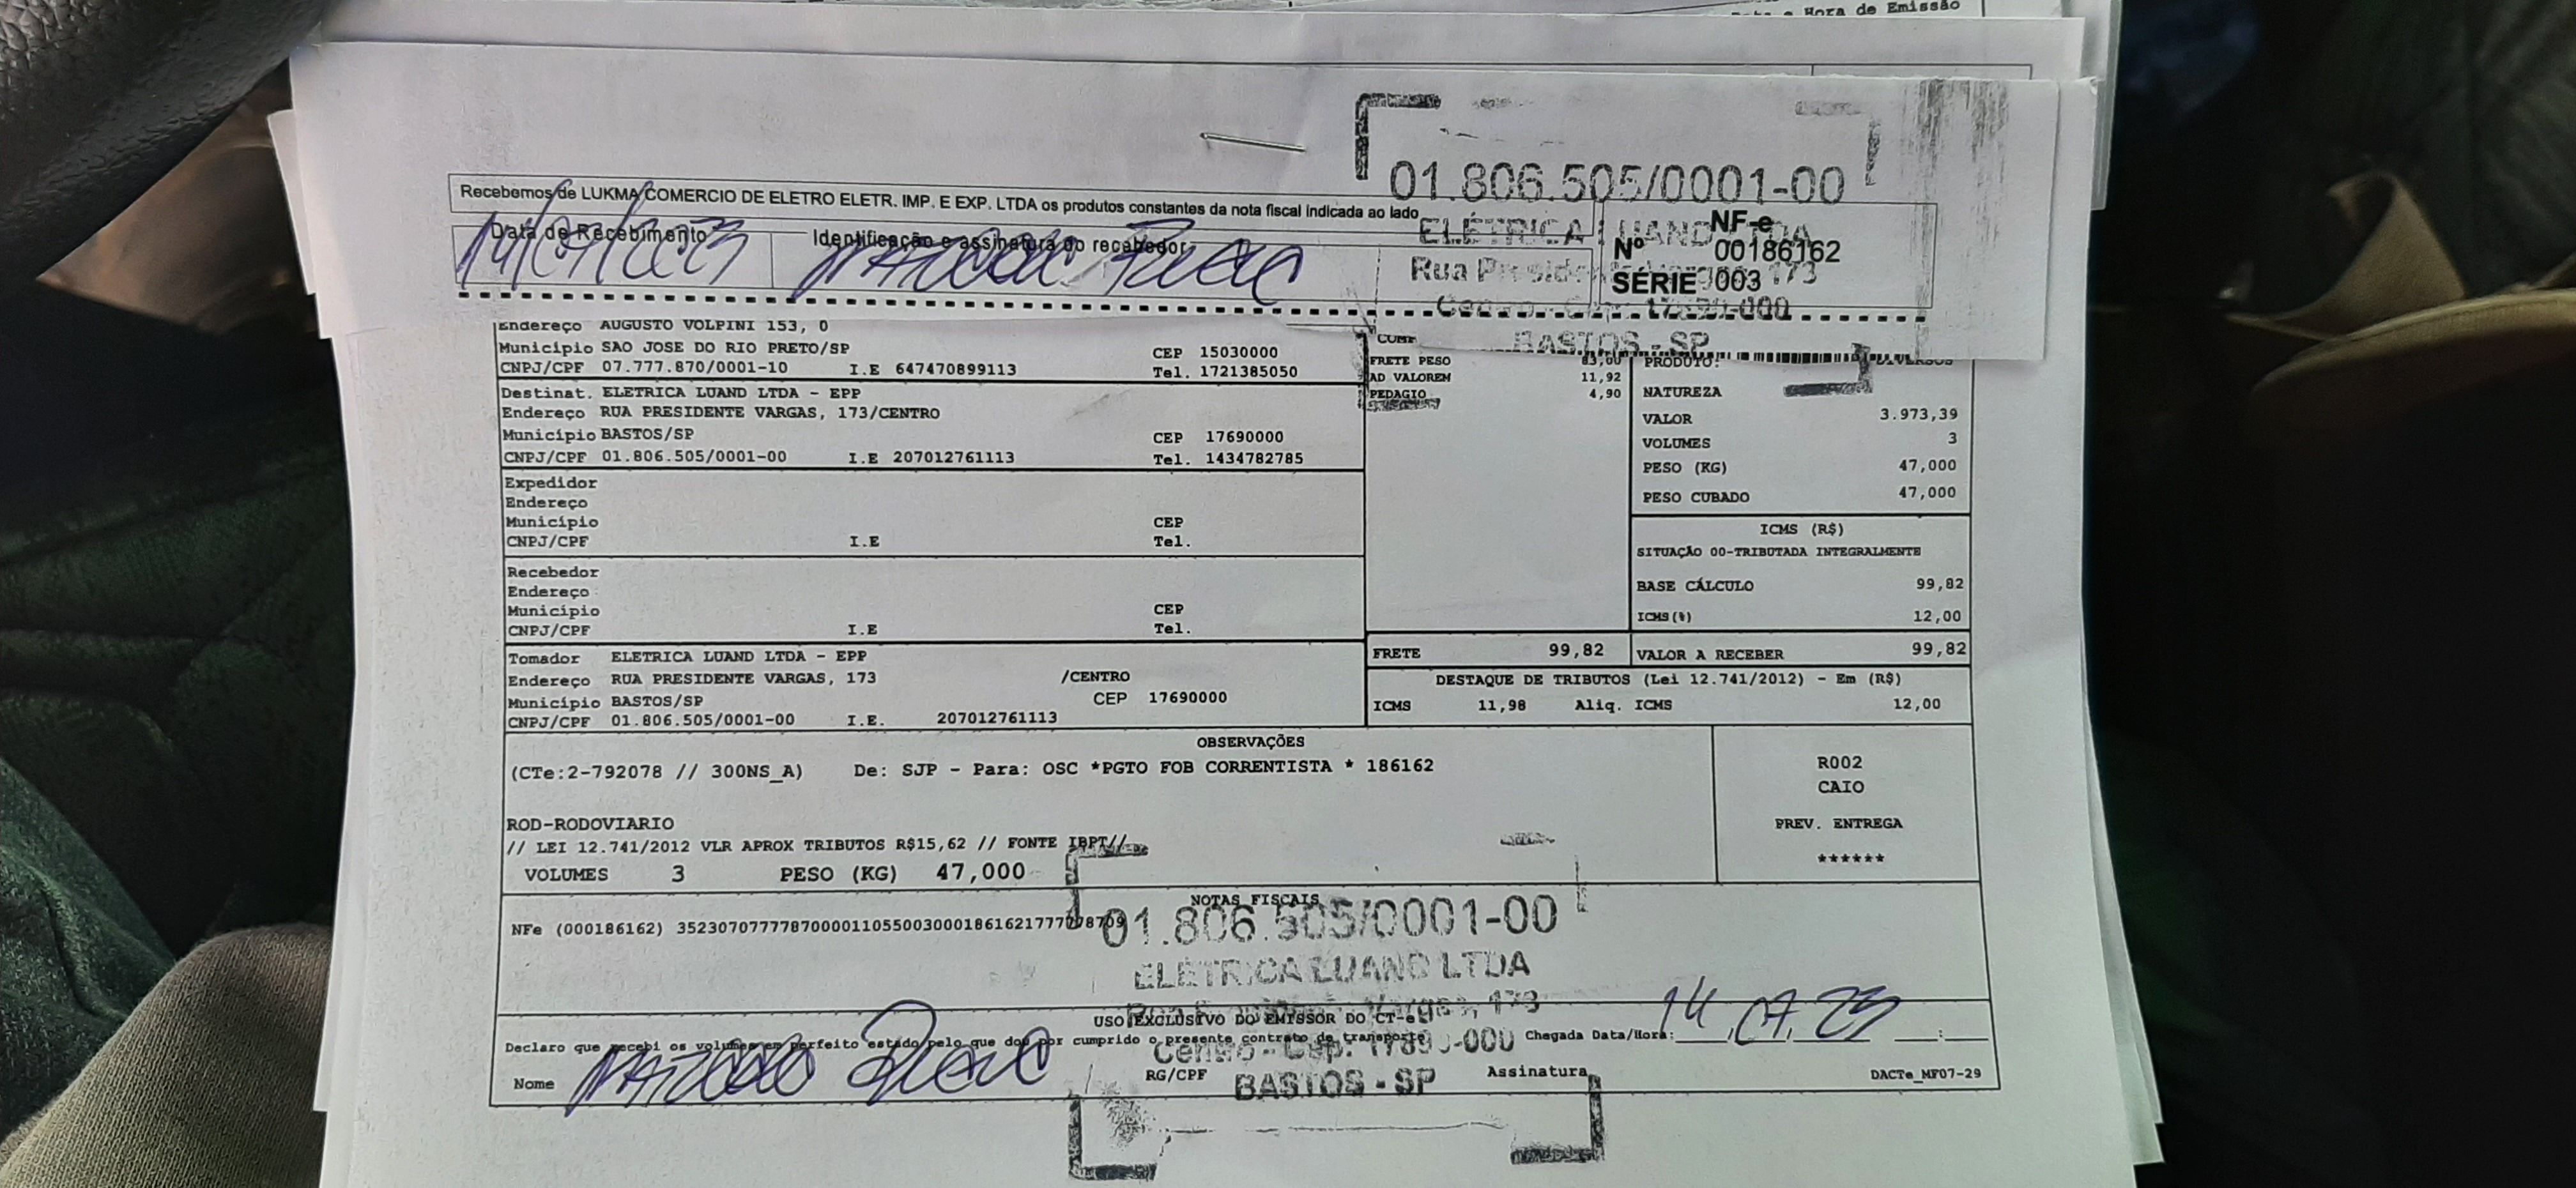 Hora de Emissão
Recebemos de LUKMA COMERCIO DE ELETRO ELETR. IMP. E EXP. LTDA os produtos constantes da nota fiscal indicada ao lado
Data de Recebimento
Identificação e assinatura do recebedor
14/07/2023
01.806.505/0001-00
ELÉTRICA LUAND LTDA
Rua Presidente Vargas, 173
BASTOS - SP
NF-e
Nº 00186162
SÉRIE 003
Endereço AUGUSTO VOLPINI 153, 0
Município SAO JOSE DO RIO PRETO/SP CEP 15030000
CNPJ/CPF 07.777.870/0001-10 I.E 647470899113 Tel. 1721385050
Destinat. ELETRICA LUAND LTDA - EPP
Endereço RUA PRESIDENTE VARGAS, 173/CENTRO
Município BASTOS/SP CEP 17690000
CNPJ/CPF 01.806.505/0001-00 I.E 207012761113 Tel. 1434782785
Expedidor
Endereço
Município CEP
CNPJ/CPF I.E Tel.
Recebedor
Endereço
Município CEP
CNPJ/CPF I.E Tel.
Tomador ELETRICA LUAND LTDA - EPP
Endereço RUA PRESIDENTE VARGAS, 173 /CENTRO
Município BASTOS/SP CEP 17690000
CNPJ/CPF 01.806.505/0001-00 I.E. 207012761113
FRETE PESO 83,00
AD VALOREM 11,92
PEDAGIO 4,90
PRODUTO: DIVERSOS
NATUREZA
VALOR 3.973,39
VOLUMES 3
PESO (KG) 47,000
PESO CUBADO 47,000
ICMS (R$)
SITUAÇÃO 00-TRIBUTADA INTEGRALMENTE
BASE CÁLCULO 99,82
ICMS(%) 12,00
FRETE 99,82 VALOR A RECEBER 99,82
DESTAQUE DE TRIBUTOS (Lei 12.741/2012) - Em (R$)
ICMS 11,98 Aliq. ICMS 12,00
OBSERVAÇÕES
(CTe:2-792078 // 300NS_A) De: SJP - Para: OSC *PGTO FOB CORRENTISTA * 186162
ROD-RODOVIARIO
// LEI 12.741/2012 VLR APROX TRIBUTOS R$15,62 // FONTE IBPT//
VOLUMES 3 PESO (KG) 47,000
R002
CAIO
PREV. ENTREGA
******
NOTAS FISCAIS
NFe (000186162)
01.806.505/0001-00
ELÉTRICA LUAND LTDA
Vargas, 173
Centro - Cep.
BASTOS - SP
USO EXCLUSIVO DO EMISSOR DO CT-e
Declaro que recebi os volumes em perfeito estado pelo que dou por cumprido o presente contrato de transporte
Chegada Data/Hora: 14.07.23 :
Nome RG/CPF Assinatura
DACTe_MF07-29